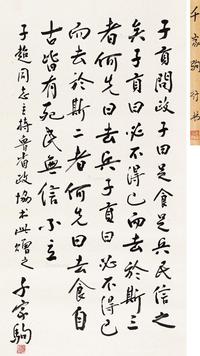 千家駒 行书
子貢問政子曰足食足兵民信之
矣子貢曰必不得已而去於斯三
者何先曰去兵子貢曰必不得已
而去於斯二者何先曰去食自
古皆有死民無信不立
子超同志主持魯省政協此贈之 千家駒